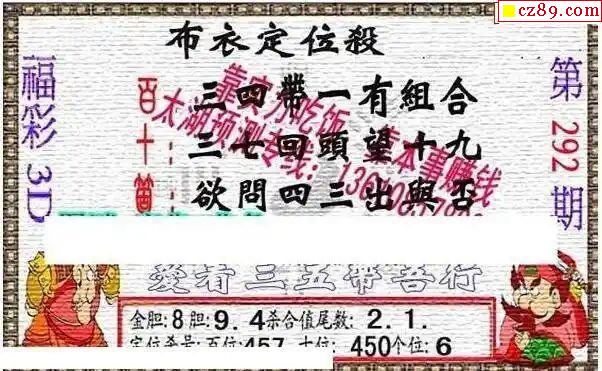 cz89.com
布衣定位殺
福彩3D
第292期
百:三四帶一有組合
十:三七回頭望十九
欲問四三出與否
靠实力吃饭 靠本事赚钱
太湖预测专线:
愛看三五帶吾行
金胆:8胆:9.4杀合值尾数:2.1.
定位杀号:百位:457 十位:450个位:6